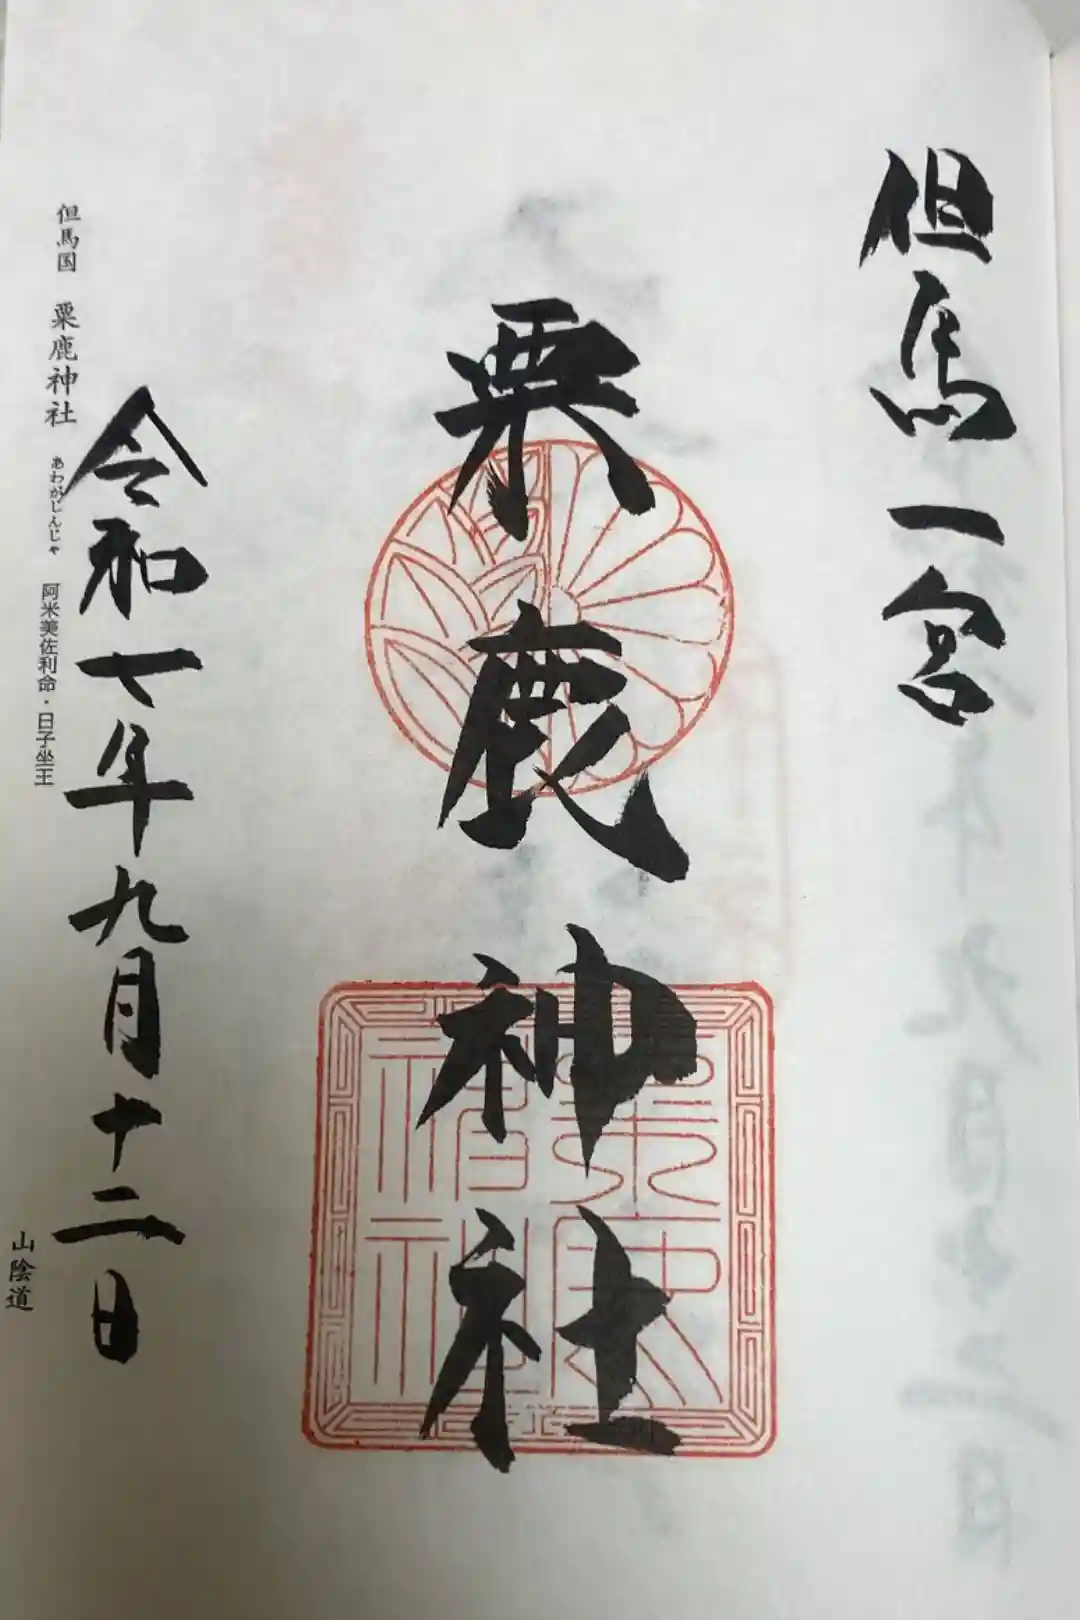 但馬一宮
粟鹿神社
令和七年九月十二日
但馬国 粟鹿神社 あわがじんじゃ 阿米美佐利命・日子坐王
山陰道